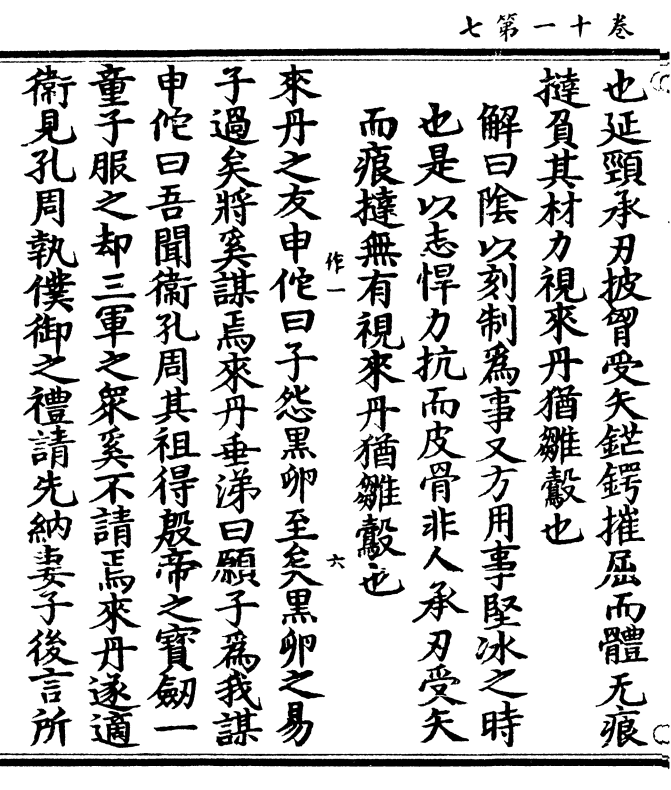 卷十一第七
也延頸承刃披胷受矢鋩鍔摧屈而體无痕
撻負其材力視來丹猶雛鷇也
解曰陰以刻制為事又方用事堅冰之時
也是以志悍力抗而皮骨非人承刃受矢
而痕撻無有視來丹猶雛鷇也
來丹之友申佗曰子怨黑卵至矣黑卵之易
子過矣將奚謀焉來丹垂涕曰願子為我謀
申佗曰吾聞衞孔周其祖得殷帝之寶劒一
童子服之却三軍之衆奚不請焉來丹遂適
衞見孔周執僕御之禮請先納妻子後言所
作一
六